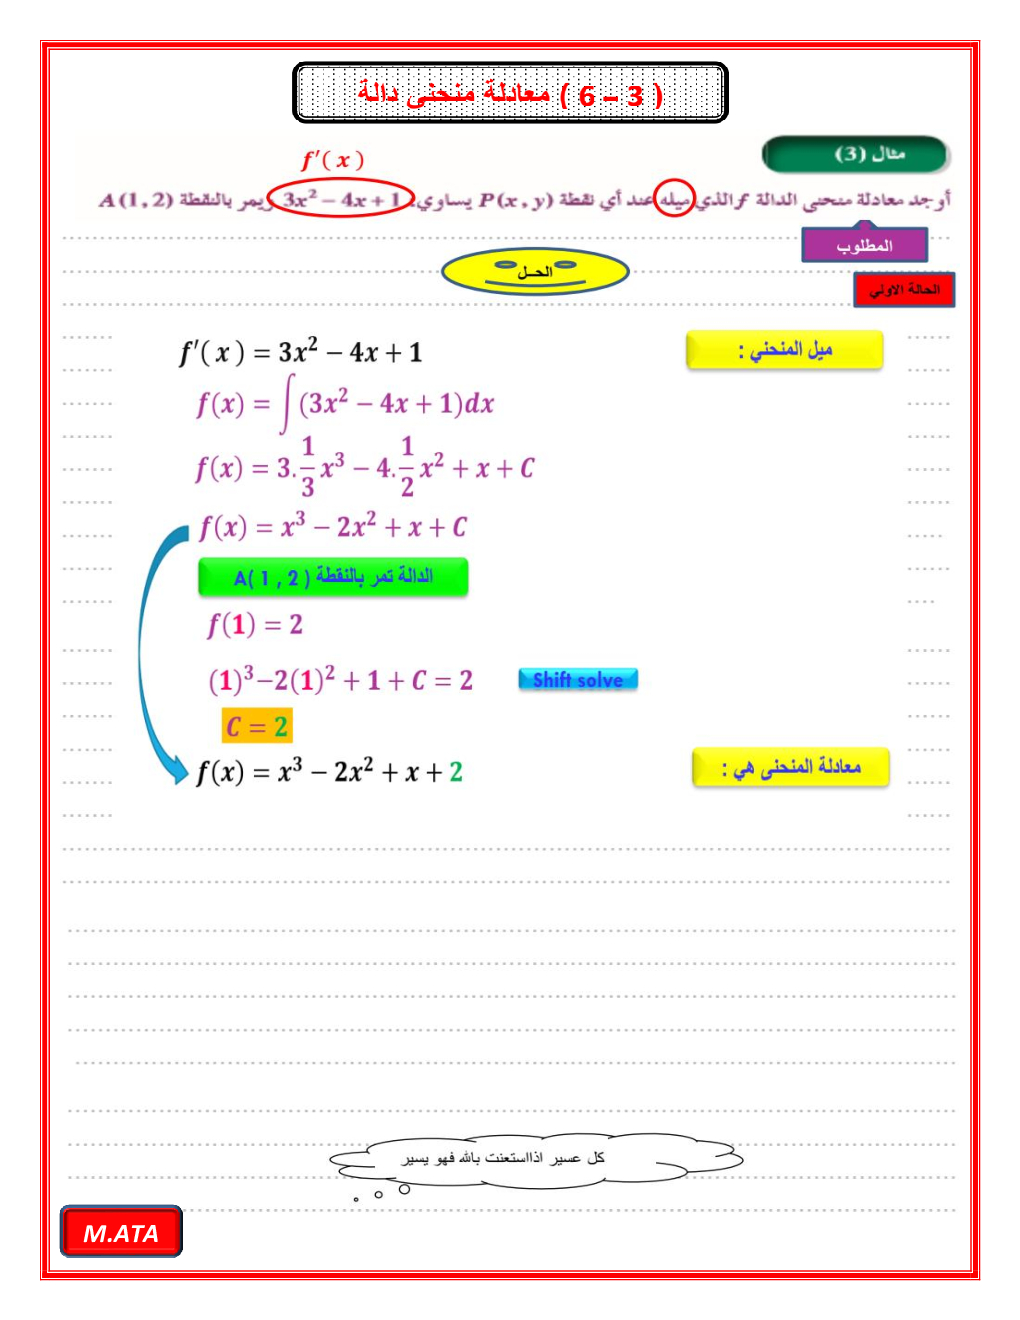 ( 6 – 3 ) معادلة منحنى دالة
مثال (3)
f′( x )
أوجد معادلة منحنى الدالة f الذي ميله عند أي نقطة P(x , y) يساوي: 3x² − 4x + 1 ويمر بالنقطة A(1, 2)
المطلوب
الحــل
الحالة الاولي
ميل المنحني :
f′( x ) = 3x² − 4x + 1
f(x) = ∫(3x² − 4x + 1)dx
f(x) = 3.1/3 x³ − 4.1/2 x² + x + C
f(x) = x³ − 2x² + x + C
الدالة تمر بالنقطة A( 1 , 2 )
f(1) = 2
(1)³−2(1)² + 1 + C = 2
Shift solve
C = 2
معادلة المنحنى هي :
f(x) = x³ − 2x² + x + 2
كل عسير اذااستعنت بالله فهو يسير
M.ATA